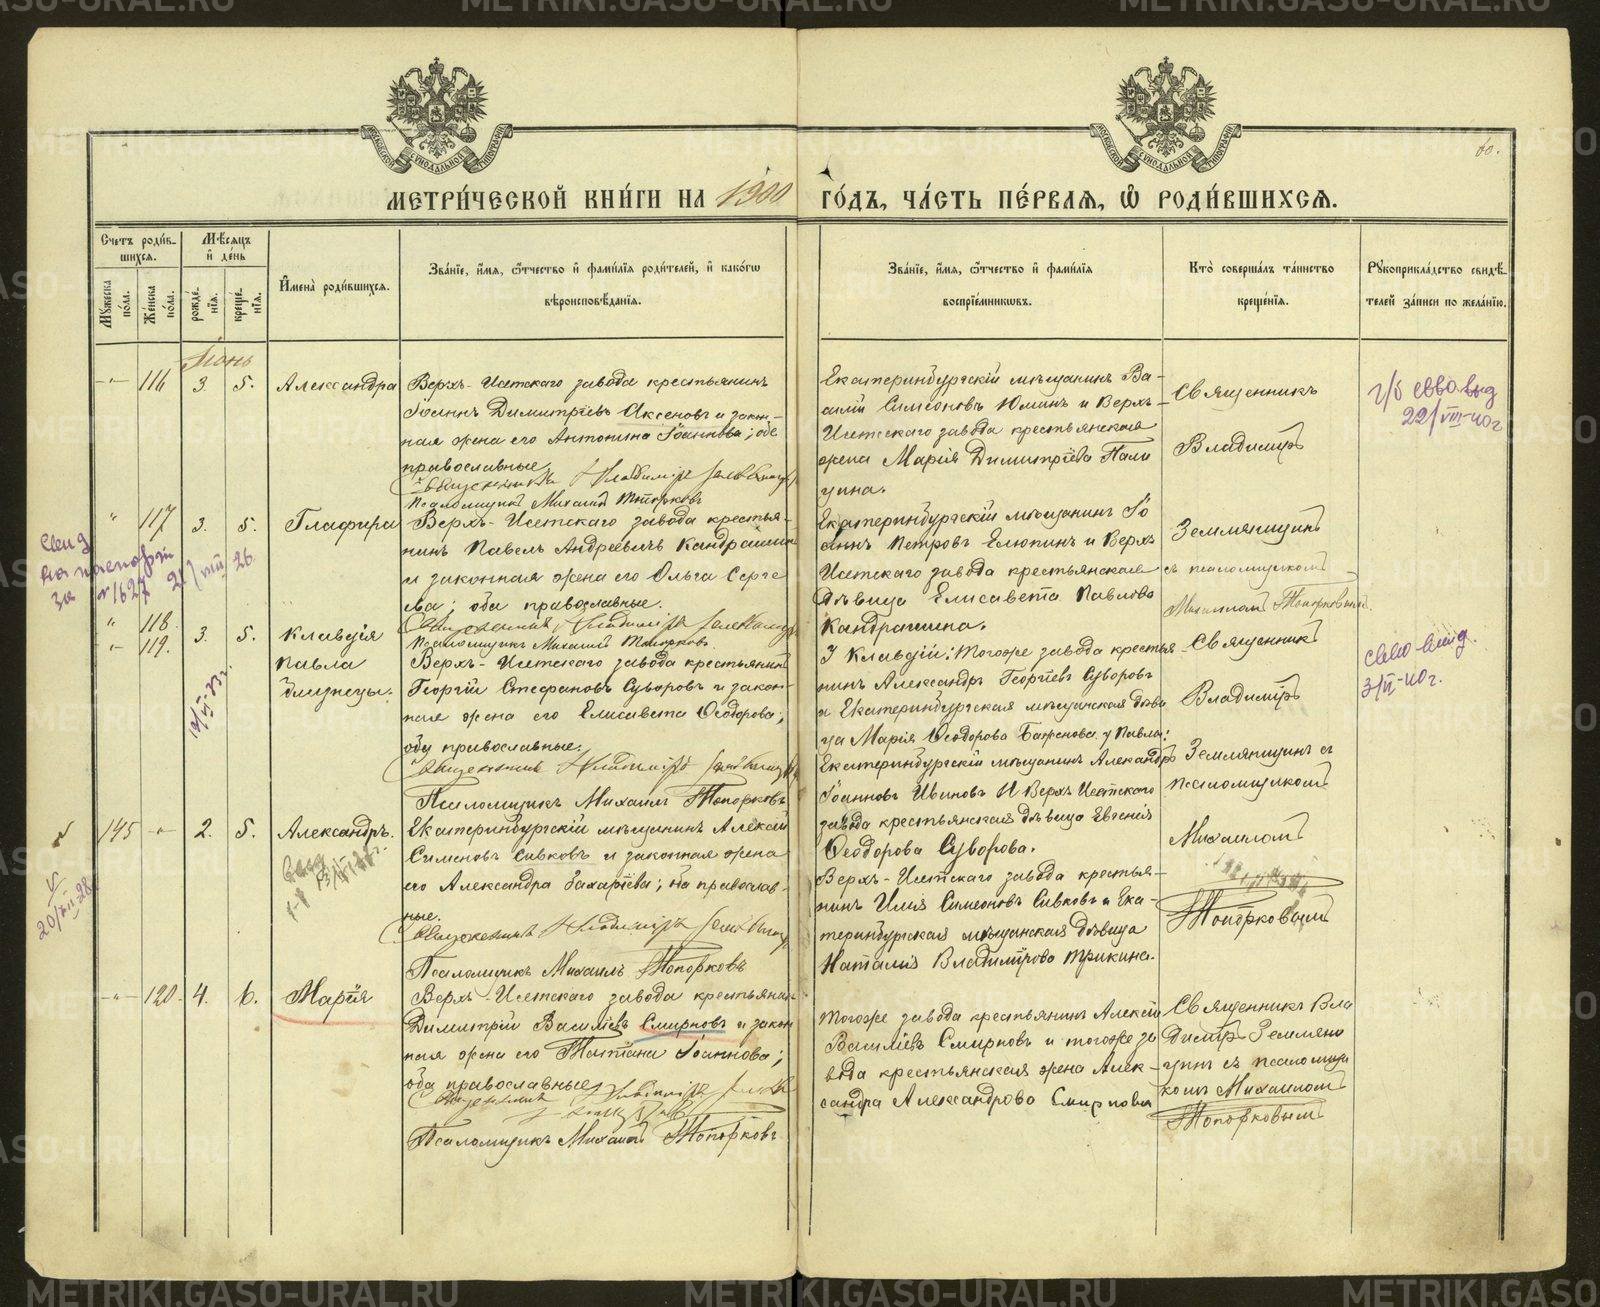 METRIKI.GASO-URAL.RU
МЕТРИ́ЧЕСКОЙ КНИ́ГИ НА 1900 ГО́ДЪ, ЧА́СТЬ ПЕ́РВАѦ, Ѿ РОДИ́ВШИХСѦ.
60.
Счетъ роди́вшихсѧ.
Мꙋ́жеска по́ла.
Же́нска по́ла.
Мѣ́сѧцъ и҆ де́нь
рожде́нїѧ.
креще́нїѧ.
И҆мена̀ роди́вшихсѧ.
Зва́нїе, и҆́мѧ, ѻ҆́тчество и҆ фами́лїѧ роди́телей, и҆ како́гѡ вѣроисповѣ́данїѧ.
Зва́нїе, и҆́мѧ, ѻ҆́тчество и҆ фами́лїѧ воспрїе́мникѡвъ.
Кто̀ соверша́лъ та́инство креще́нїѧ.
Рꙋкоприкла́дство свидѣ́телей за́писи по жела́нїю.
Іюнь
116 3. 5. Александра
Верхъ-Исетскаго завода крестьянинъ
Іоаннъ Димитріевъ Аксеновъ и закон-
ная жена его Антонина Іоаннова; обе
православные.
Священникъ Владиміръ
Псаломщикъ Михаилъ Топорковъ
Екатеринбургскій мѣщанинъ Ва-
силій Симеоновъ Юминъ и Верхъ-
Исетскаго завода крестьянская
жена Марія Димитріева Пали
цина.
Священникъ
Владиміръ
22/VIII-40г
117 3. 5. Глафира
Верхъ-Исетскаго завода крестья-
нинъ Павелъ Андреевичъ Кандрашин
и законная жена его Ольга Серге
ева; оба православные.
Псаломщикъ Михаилъ Топорковъ.
Екатеринбургскій мѣщанинъ Іо
аннъ Петровъ Елюпинъ и Верхъ
Исетскаго завода крестьянская
дѣвица Елисавета Павлова
Кандрашина.
Земляницинъ
съ псаломщикомъ
Михаиломъ Топорковымъ.
за №1627 21/VIII 26.
118.
119. 3. 5. Клавдія
Павла
близнецы.
Верхъ-Исетскаго завода крестьянинъ
Георгій Стефановъ Суворовъ и закон-
ная жена его Елисавета Ѳеодорова;
оба православные.
Священникъ Владиміръ
Псаломщикъ Михаилъ Топорковъ
У Клавдіи: тогоже завода крестья-
нинъ Александръ Георгіевъ Суворовъ
и Екатеринбургская мѣщанская дѣви
ца Марія Ѳеодорова Баженова. у Павлы:
Екатеринбургскій мѣщанинъ Александръ
Іоанновъ Ивановъ и Верхъ Исетскаго
завода крестьянская дѣвица Евгенія
Ѳеодорова Суворова.
Священникъ
Владиміръ
Земляницинъ съ
псаломщикомъ
Михаиломъ
Топорковымъ
145 2. 5. Александръ.
Екатеринбургскій мѣщанинъ Алексѣй
Симеоновъ Сивковъ и законная жена
его Александра Захаріева; оба православ-
ные.
Священникъ Владиміръ
Псаломщикъ Михаилъ Топорковъ
Верхъ-Исетскаго завода крестья-
нинъ Илія Симеоновъ Сивковъ и Ека-
теринбургская мѣщанская дѣвица
Наталія Владимірова Трикина.
20/VII-28
120 4. 6. Марія
Верхъ-Исетскаго завода крестьянинъ
Димитрій Василіевъ Смирновъ и закон
ная жена его Татіана Іоаннова;
оба православные
Псаломщикъ Михаилъ Топорковъ
Тогоже завода крестьянинъ Алексѣй
Василіевъ Смирновъ и тогоже за
вода крестьянская жена Алек-
сандра Александрова Смирнова
Священникъ Вла
диміръ Земляни
цинъ съ псаломщи
комъ Михаиломъ
Топорковымъ
METRIKI.GASO-URAL.RU